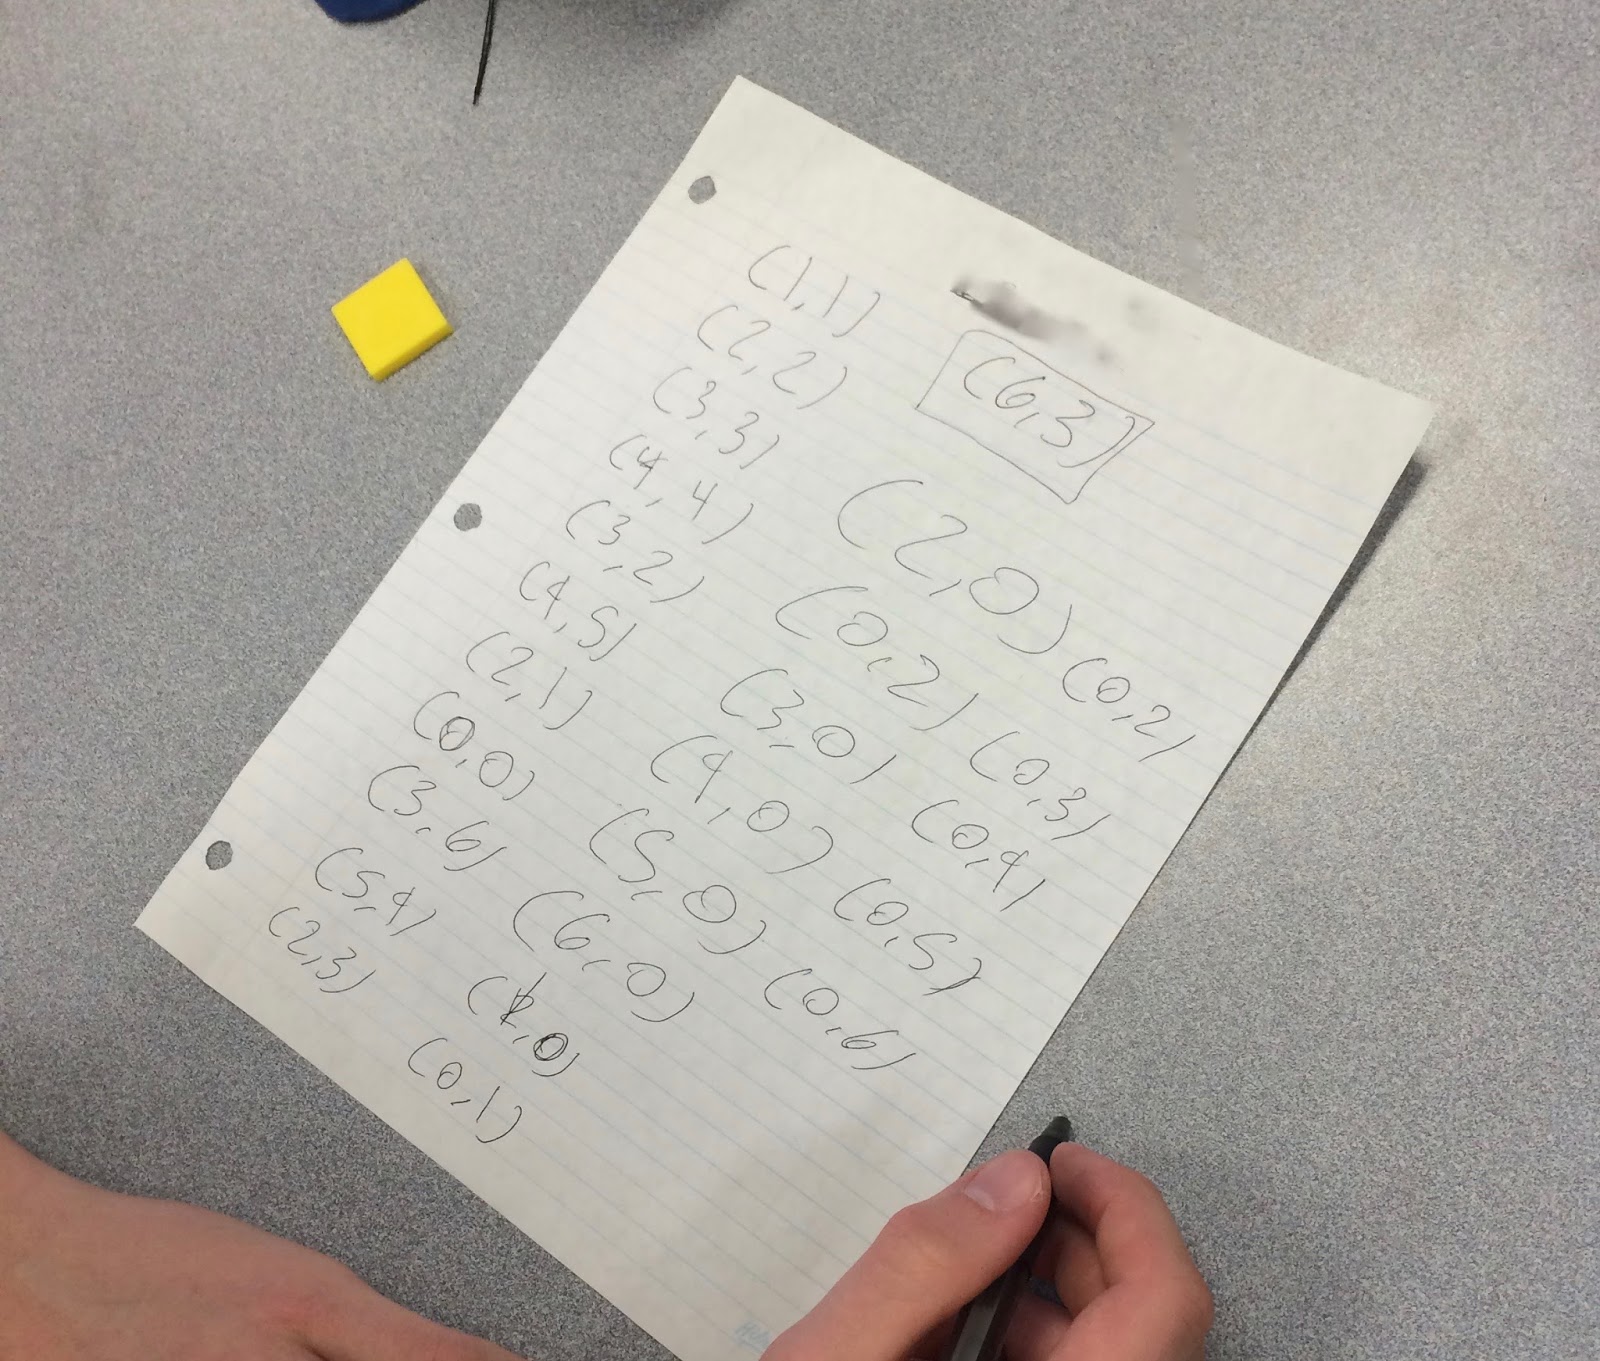 (1,1)
(2,2)
(3,3)
(4,4)
(3,2)
(4,5)
(2,1)
(0,0)
(3,6)
(5,4)
(2,3)
(6,3)
(2,0)
(0,2)
(3,0)
(4,0)
(5,0)
(6,0)
(1,0)
(0,1)
(0,2)
(0,3)
(0,4)
(0,5)
(0,6)